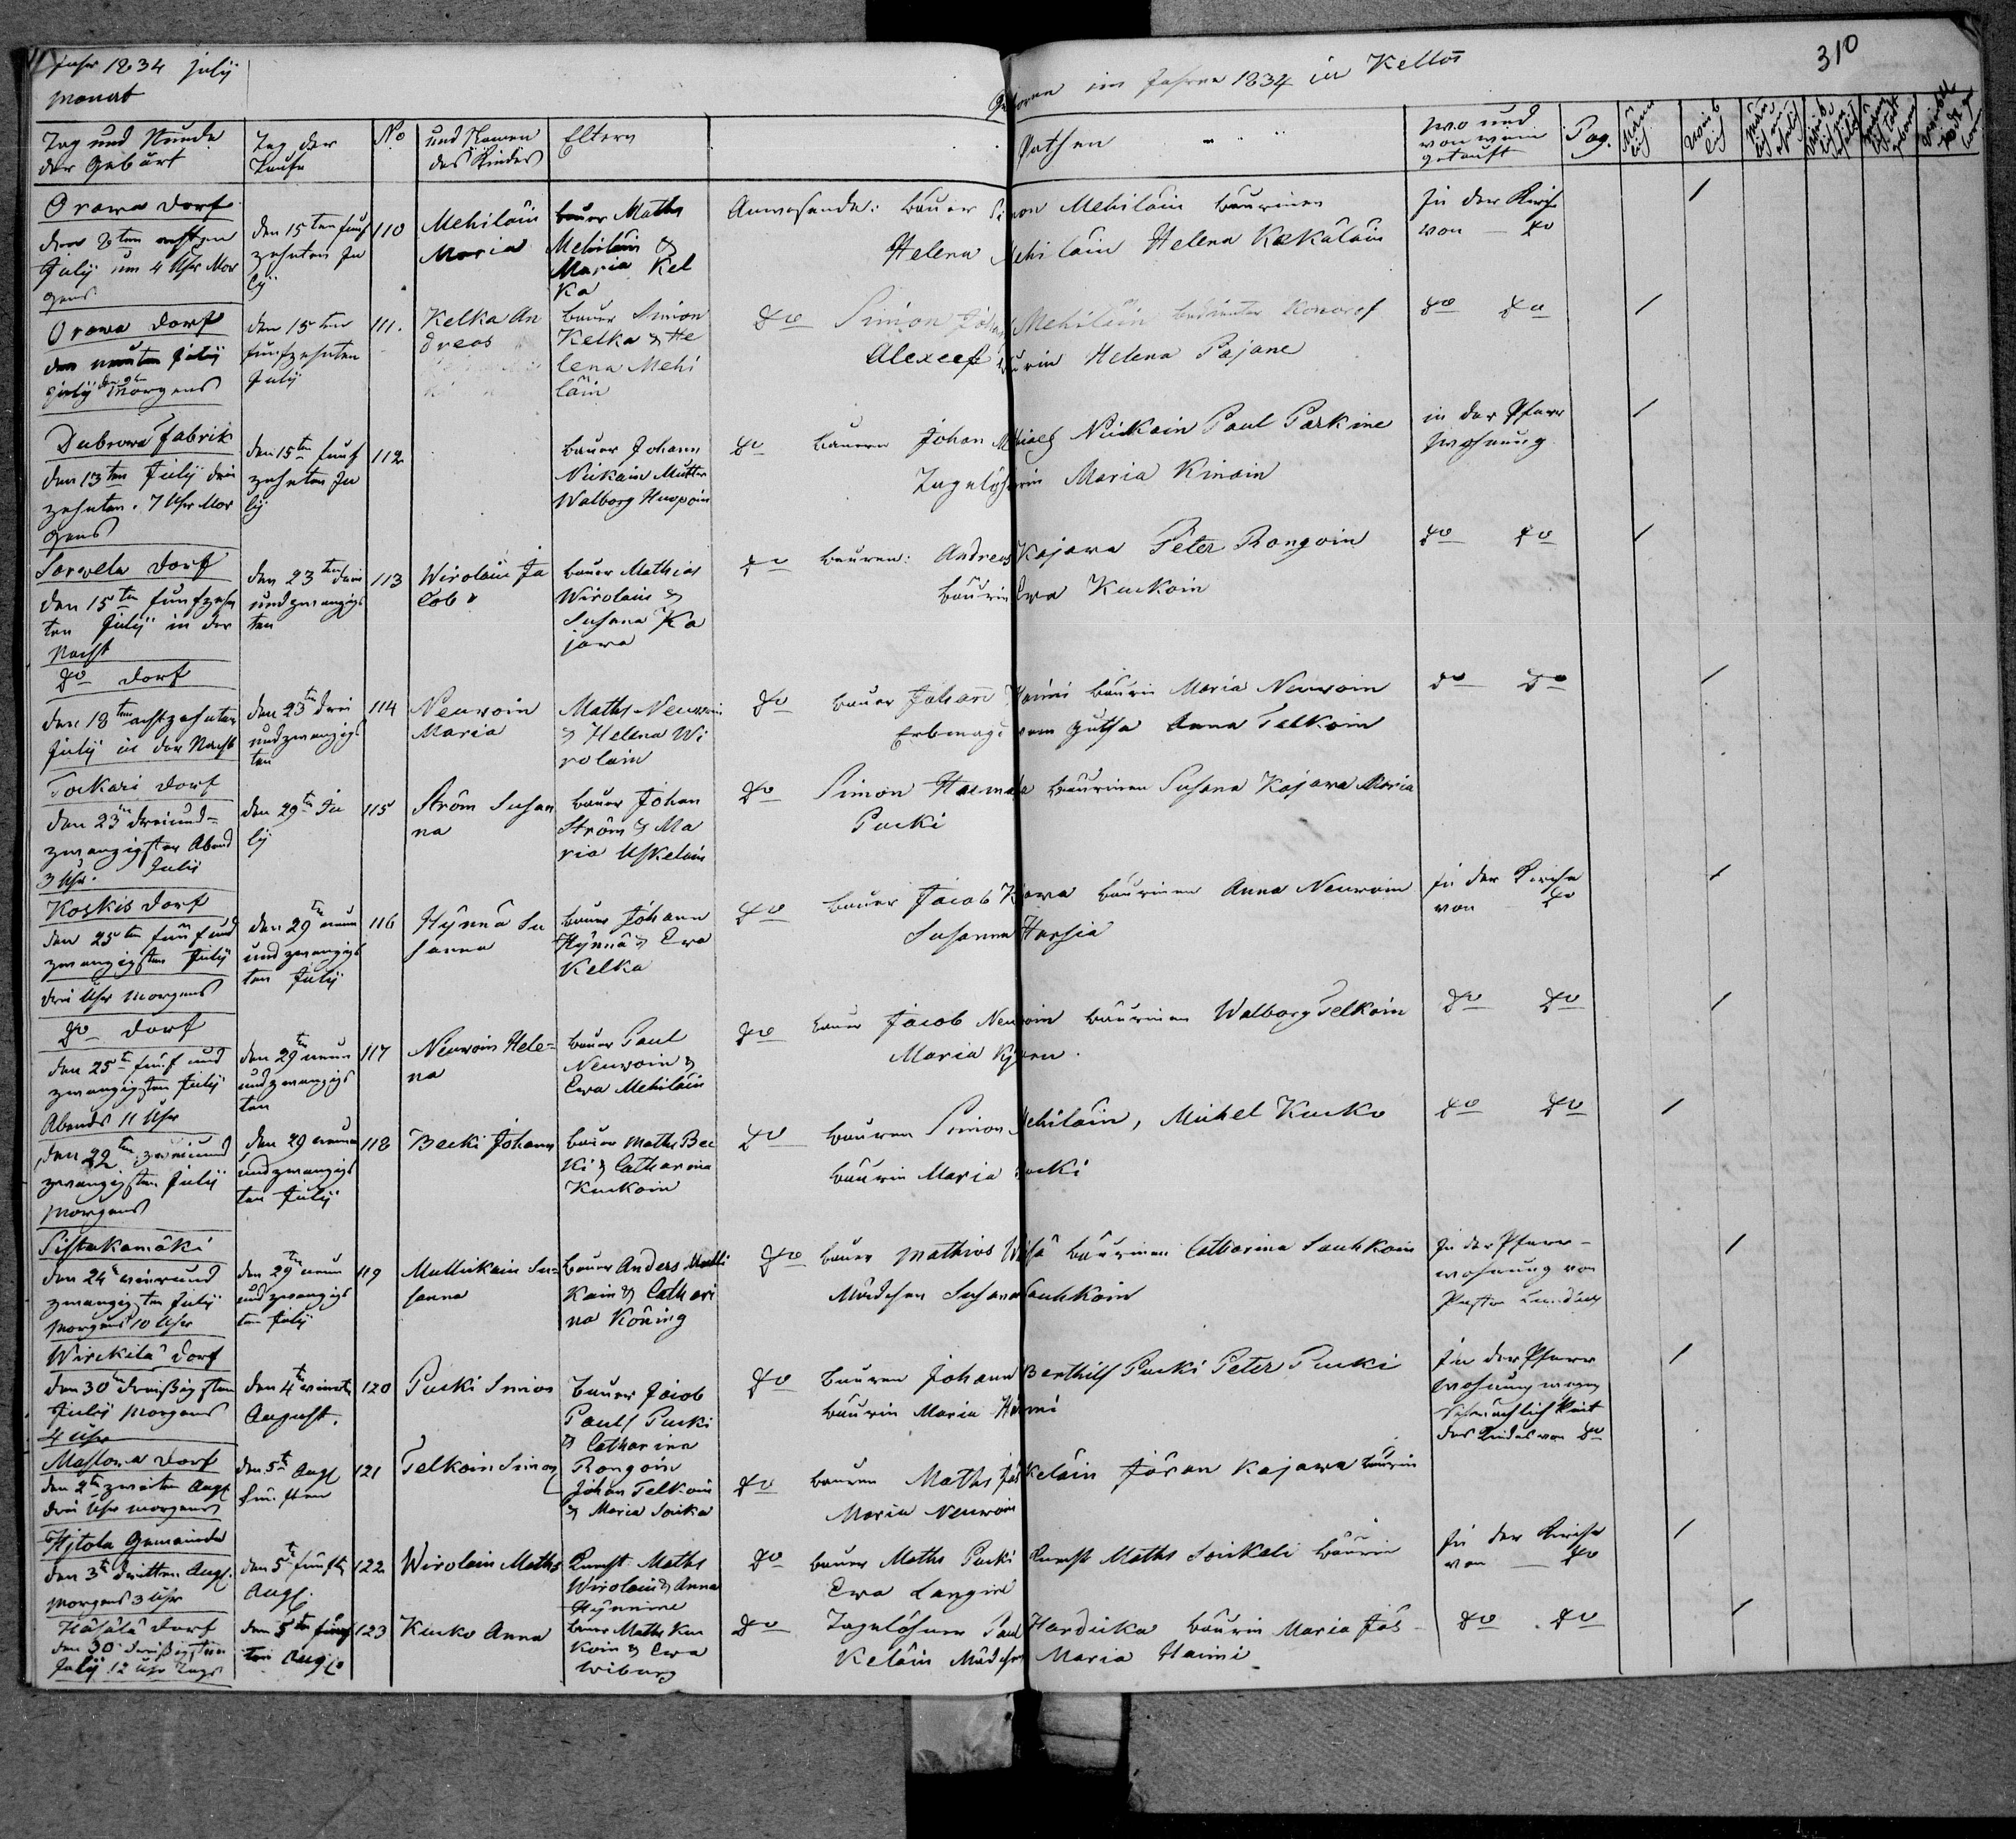 Jahr 1834 July
Monat
Geboren im Jahren 1834 in Keltos
310
Tag und Stunde der Geburt
Tag der Taufe
No
und Namen des Kindes
Eltern
Pathen
wo und von wem getauft
Pag.
Orawa Dorf
den 8ten achten
July um 4 Uhr Mor
gens
den 15ten funf
zehnten Ju
ly
110
Mehiläin
Maria
bauer Maths
Mehiläin &
Maria Kel
ka
Anwesende: bauer Simon Mehiläin bäurinen
Helena Mehiläin Helena Kækäläin
In der Kirche
von do
Orawa Dorf
den neunten july
july den 9ten Morgens
den 15ten
funfzehnten
July
111.
Kelka An
dreas
bauer Simon
Kelka & He
lena Mehi
läin
do Simon Johan Mehiläin
Alexeef bäurin Helena Pajane
do do
Dubrowa Fabrik
den 13ten July drei
zehnten. 7 Uhr Mor
gens
den 15ten funf
zehnten Ju
ly
112
bauer Johann
Nükain Mutter
Walborg
do bauern Johan Nükain Paul Parkine
Tagelöhnerin Maria Kinain
in der Pfarr
wohnung
Sarwela Dorf
den 15ten funfzehn
ten July in der
Nacht
den 23ten drei
undzwanzigs
ten
113
Wirolain Ja
cob
bauer Mathias
Wirolain &
Susana Ka
jawa
do bauren: Andreas Kajawa Peter Rongoin
bäurin Ewa Kuckoin
do do
do Dorf
den 18ten achtzehnten
July in der Nacht
den 23ten drei
undzwanzigs
ten
114
Neuwoin
Maria
Maths Neuwoin
& Helena Wi
rolain
do bauer Johann Haimi bäurin Maria Neuwoin
Erbmagd vom Guthe Anna Telkoin
do do
Tockari Dorf
den 23ten dreiund=
zwanzigsten Abend
3 Uhr. July
den 29ten Ju
ly
115
Ström Susan
na
bauer Johan
Ström & Ma
ria Uskeläin
do Simon bäurinen Susana Kajawa Maria
Pucki
Koskis Dorf
den 25ten funfund
zwanzigsten July
drei Uhr Morgens
den 29ten neun
undzwanzigs
ten July
116
Hÿnnä Su
sanna
bauer Johann
Hÿnnä & Ewa
Kelka
do bauer Jacob bäurinen Anna Neuwoin
Susanna
In der Kirche
von do
do Dorf
den 25ten funf und
zwanzigsten July
Abends 11 Uhr
den 29ten neun
undzwanzigs
ten
117
Neuwoin Hele=
na
bauer Paul
Neuwoin &
Ewa Mehiläin
do bauer Jacob Neuwoin bäurinen Walborg Telkoin
Maria
do do
den 22ten zweiund
zwanzigsten July
Morgens
den 29 neun
undzwanzigs
ten July
118
Becki Johann
bauer Maths Bec
ki & Catharina
Kuckoin
do bauren Simon Mehiläin, Michel Kucko
bäurin Maria Pucki
do do
Sistakamäki
den 24ten vierund
zwanzigsten July
Morgens 10 Uhr
den 29ten neun
undzwanzigs
ten July
119
Mullukain Su=
sanna
bauer Anders Mullu
kain & Cathari
na Köning
do bauer Mathias bäurinen Catharina Sauhkoin
Mädchen Susana Sauhkoin
In der Pfarr-
wohnung von
Pastor
Wirckilä Dorf
den 30ten dreißigsten
July Morgens
4 Uhr
den 4ten vierten
August.
120
Pucki Simon
bauer Jacob
Pauls Pucki
& Catharina
Rongoin
do bauren Johann Berthils Pucki Peter Pucki
bäurin Maria Haimi
In der Pfarr
wohnung wegen
Schwächlichkeit
des Kindes von do
Maslowa Dorf
den 2ten zweiten Augs
drei Uhr Morgens
den 5ten Augs
funften
121
Telkoin Simon
Johan Telkoin
& Maria Soika
do bauren Maths Jäskeläin Jöran Kajawa bäurin
Maria Neuwoin
Hjtola Gemeinde
den 3ten dritten Augs.
Morgens 3 Uhr
den 5ten funften
Augs.
122
Wirolain Maths
Knecht Maths
Wirolain & Anna
Hÿnnine
do bauer Maths Pucki Knecht Maths Soikeli bäurin
Ewa Langine
In der Kirche
von do
Häsälä Dorf
den 30 dreißigsten
July 12 Uhr Tags
den 5ten funf
ten Augs
123
Kucko Anna
bauer Maths Kuc
koin & Ewa
Wiburg
do Tagelöhner Paul Hardicka bäurin Maria Jäs-
keläin Mädchen Maria Haimi
do do